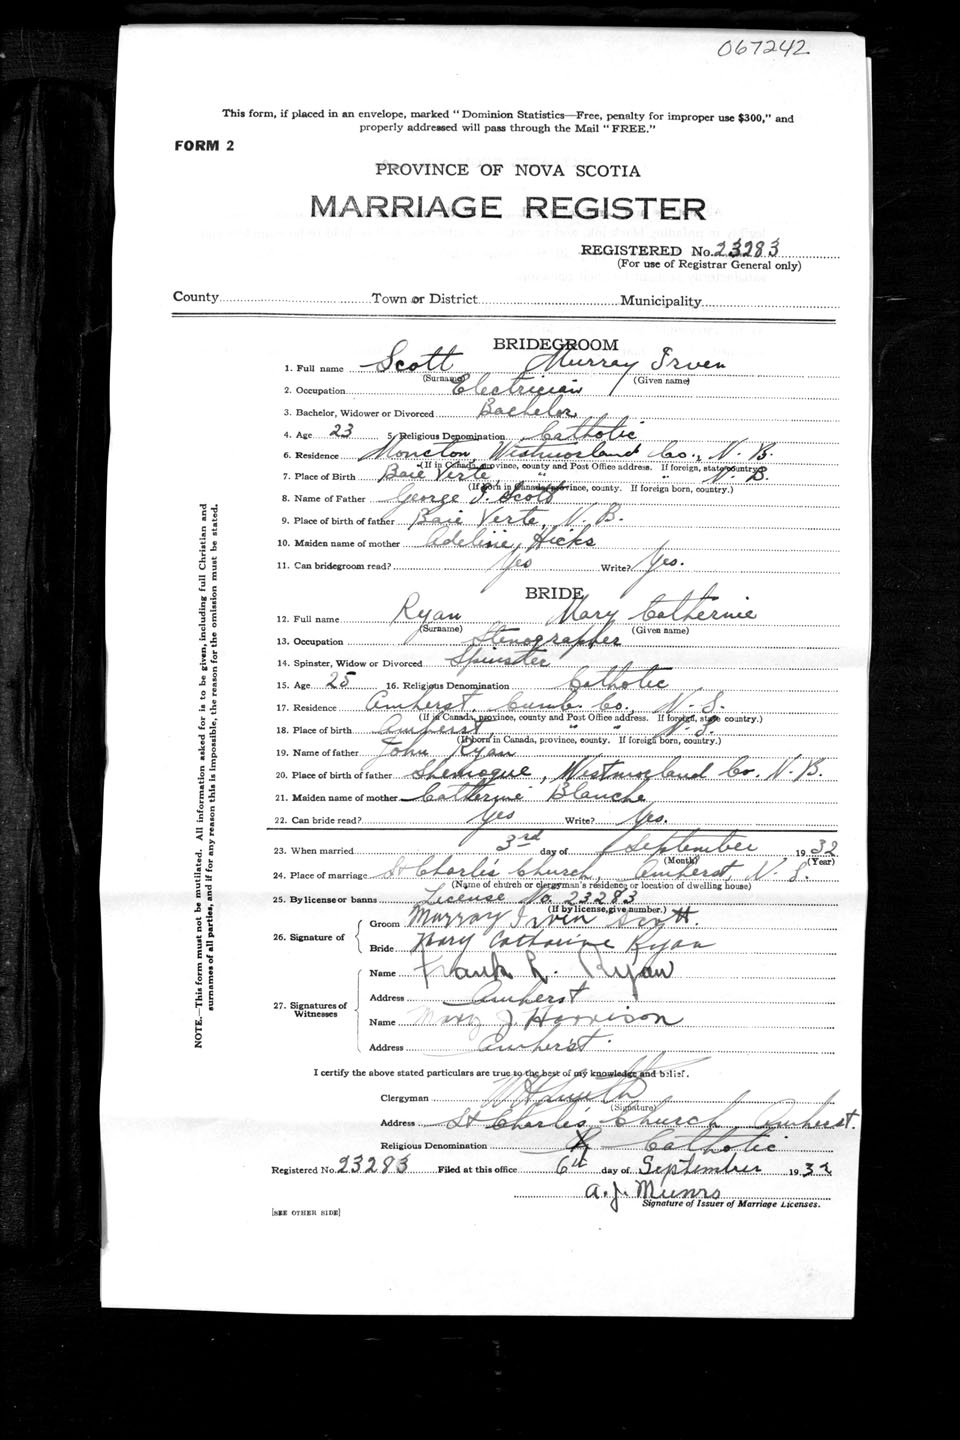 067242
This form, if placed in an envelope, marked "Dominion Statistics—Free, penalty for improper use $300," and
properly addressed will pass through the Mail "FREE."
FORM 2
PROVINCE OF NOVA SCOTIA
MARRIAGE REGISTER
REGISTERED No. 23283
(For use of Registrar General only)
County Town or District Municipality
BRIDEGROOM
1. Full name Scott Murray Irven
(Surname) (Given name)
2. Occupation Electrician
3. Bachelor, Widower or Divorced Bachelor
4. Age 23 5. Religious Denomination Catholic
6. Residence Moncton, Westmorland Co., N. B.
(If in Canada, province, county and Post Office address. If foreign, state country.)
7. Place of Birth Baie Verte " " N. B.
(If born in Canada, province, county. If foreign born, country.)
8. Name of Father George J. Scott
9. Place of birth of father Baie Verte, N. B.
10. Maiden name of mother Adeline Hicks
11. Can bridegroom read? Yes Write? Yes.
BRIDE
12. Full name Ryan Mary Catherine
(Surname) (Given name)
13. Occupation Stenographer
14. Spinster, Widow or Divorced Spinster
15. Age 25 16. Religious Denomination Catholic
17. Residence Amherst, Cumb. Co., N. S.
(If in Canada, province, county and Post Office address. If foreign, state country.)
18. Place of birth Amherst, " " N. S.
(If born in Canada, province, county. If foreign born, country.)
19. Name of father John Ryan
20. Place of birth of father Shemogue, Westmorland Co. N. B.
21. Maiden name of mother Catherine Blanche
22. Can bride read? Yes Write? Yes.
23. When married 3rd day of September 1932
(Month) (Year)
24. Place of marriage St Charles Church, Amherst, N. S.
(Name of church or clergyman's residence or location of dwelling house)
25. By license or banns License No. 23283
(If by license, give number.)
26. Signature of
Groom Murray Irvin Scott.
Bride Mary Catharine Ryan
27. Signatures of Witnesses
Name Frank L. Ryan
Address Amherst
Name Mary J. Harrison
Address Amherst.
I certify the above stated particulars are true to the best of my knowledge and belief.
Clergyman
(Signature)
Address St Charles Church Amherst.
Religious Denomination R Catholic
Registered No. 23283 Filed at this office 6th day of September 1932
A. J. Munro
Signature of Issuer of Marriage Licenses.
[SEE OTHER SIDE]
NOTE.—This form must not be mutilated. All information asked for is to be given, including full Christian and
surnames of all parties, and if for any reason this is impossible, the reason for the omission must be stated.